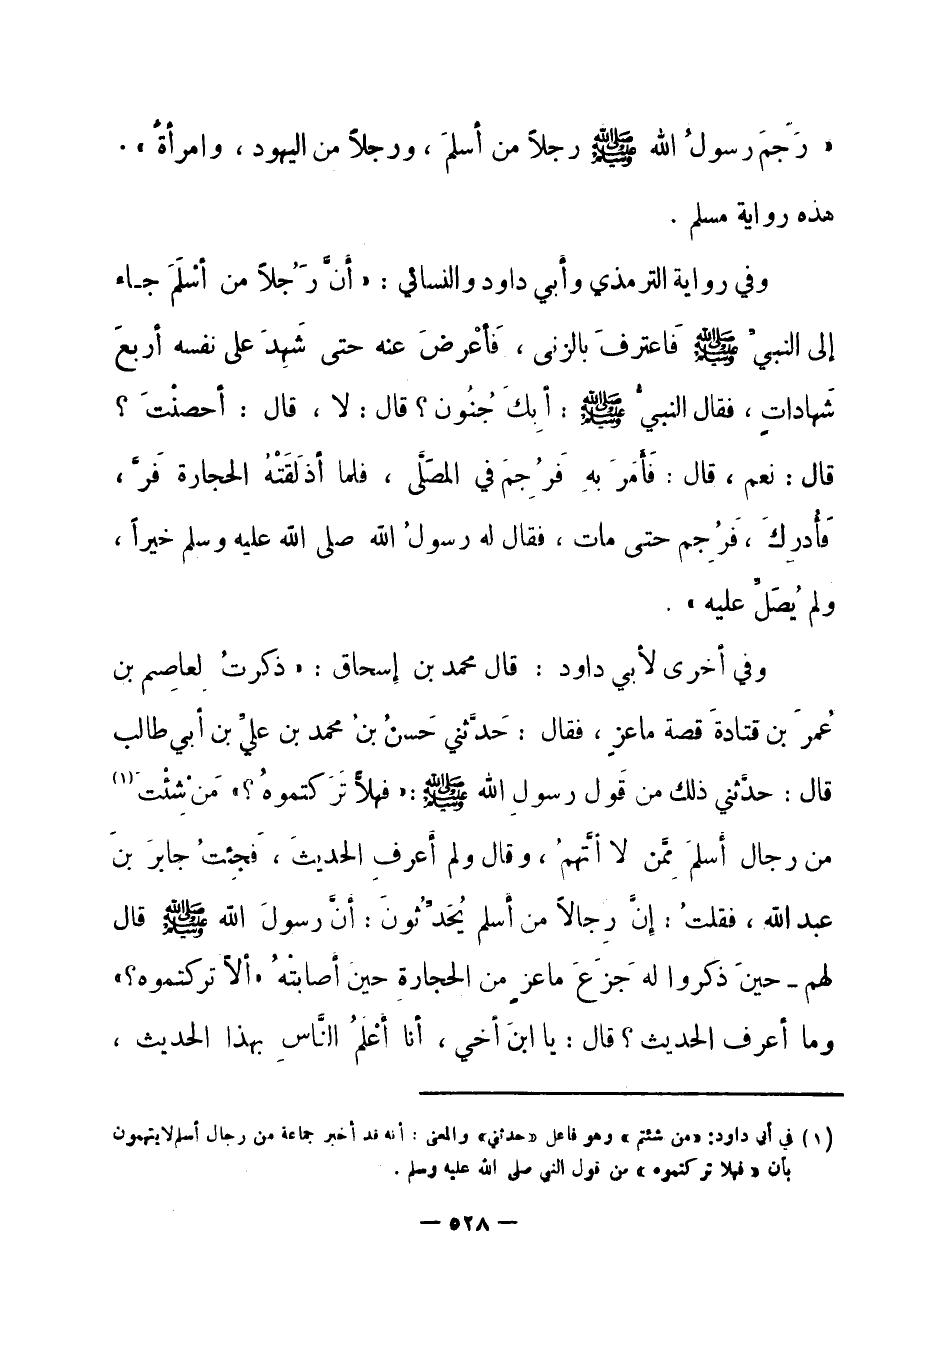 « رَجَمَ رسولُ الله ﷺ رجلاً من أسلمَ ، ورجلاً من اليهود ، وامرأةً » .
هذه رواية مسلم .
وفي رواية الترمذي وأبي داود والنسائي : « أنَّ رَجُلاً من أسْلَمَ جاء
إلى النبيِّ ﷺ فَاعترفَ بالزنى ، فَأعْرضَ عنه حتى شَهِدَ على نفسه أربعَ
شَهاداتٍ ، فقال النبيُّ ﷺ : أبِكَ جُنُون ؟ قال : لا ، قال : أحصنْتَ ؟
قال : نعم ، قال : فَأَمَرَ بهِ فَرُجِمَ في المصَلَّى ، فلما أذلَقَتْهُ الحجارة فَرَّ ،
فَأُدرِكَ ، فَرُجِم حتى مات ، فقال له رسولُ الله صلى الله عليه وسلم خيراً ،
ولم يُصَلِّ عليه » .
وفي أخرى لأبي داود : قال محمد بن إسحاق : « ذكرتُ لِعاصِم بن
عُمرَ بن قتادةَ قصة ماعزٍ ، فقال : حَدَّثني حَسنُ بنُ محمد بن عليِّ بن أبي طالب
قال : حدَّثني ذلك من قَول رسولِ الله ﷺ : « فهلاَّ تَرَكتموهُ ؟ » مَنْ شِئْتَ (١)
من رجال أسلمَ مِمَّن لا أتَّهمُ ، وقال ولم أَعرفِ الحديثَ ، فَجِئتُ جابرَ بنَ
عبد الله ، فقلتُ : إنَّ رِجالاً من أسلم يُحَدِّثُونَ : أنَّ رسولَ الله ﷺ قال
لهم ـ حينَ ذكروا له جَزَعَ ماعزٍ من الحجارةِ حينَ أصابتْهُ « ألاَّ تركتموه ؟ »
وما أعرف الحديث ؟ قال : يا ابنَ أخي ، أنا أعْلَمُ النَّاسِ بهذا الحديث ،
(١) في أبي داود : « من شئتم » وهو فاعل « حدثني » والمعنى : أنه قد أخبر جماعة من رجال أسلم لا يتهمون
بأن « فهلا تركتموه » من قول النبي صلى الله عليه وسلم .
— ٥٢٨ —